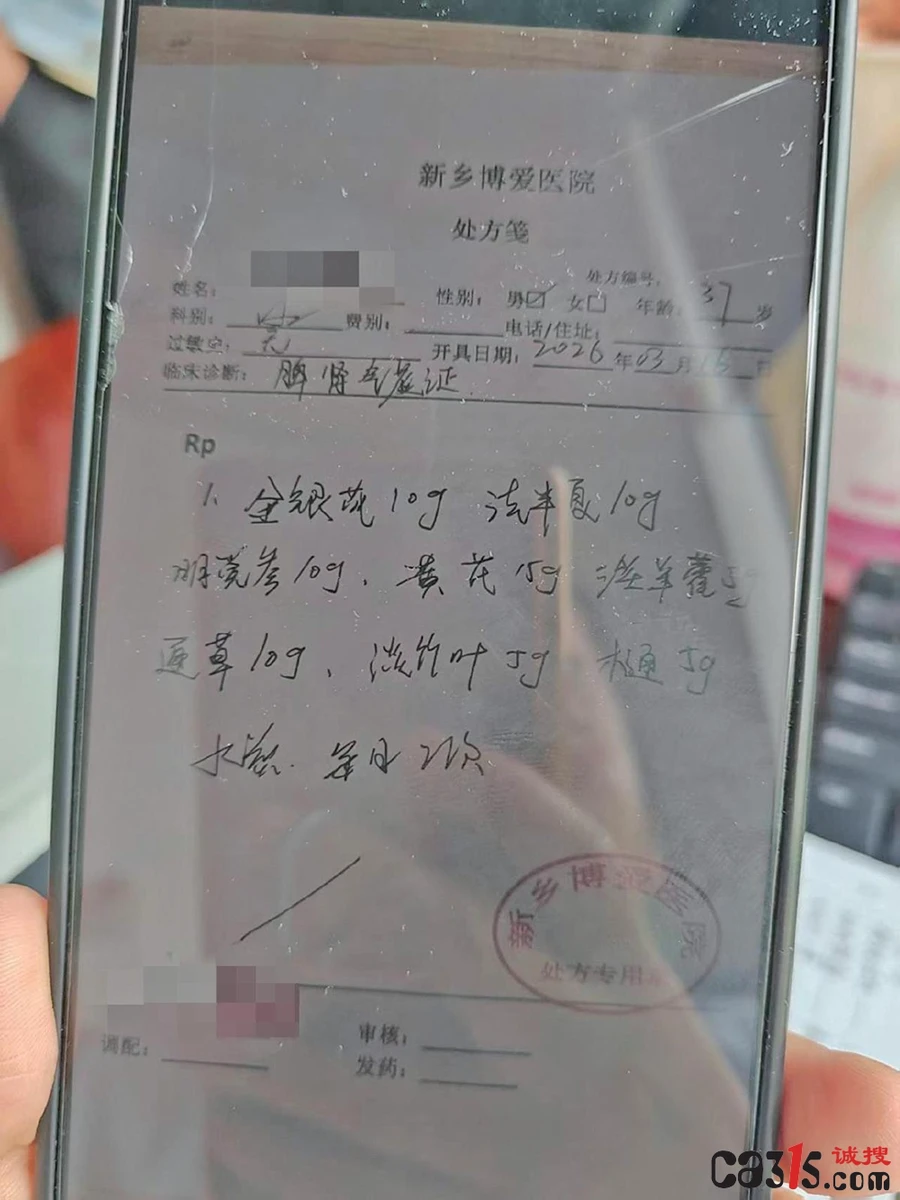 新乡博爱医院
处方笺
处方编号:
姓名: 性别: 男☑ 女□ 年龄: 37 岁
科别: 费别: 电话/住址:
过敏史: 无 开具日期: 2026 年 03 月 日
临床诊断: 脾肾气虚证
Rp
1. 金银花10g 法半夏10g
明党参10g、黄芪15g 淫羊藿5g
通草10g、淡竹叶5g 木通5g
水煎. 每日2次
新乡博爱医院
处方专用
调配: 审核:
发药:
ca315诚搜
.com